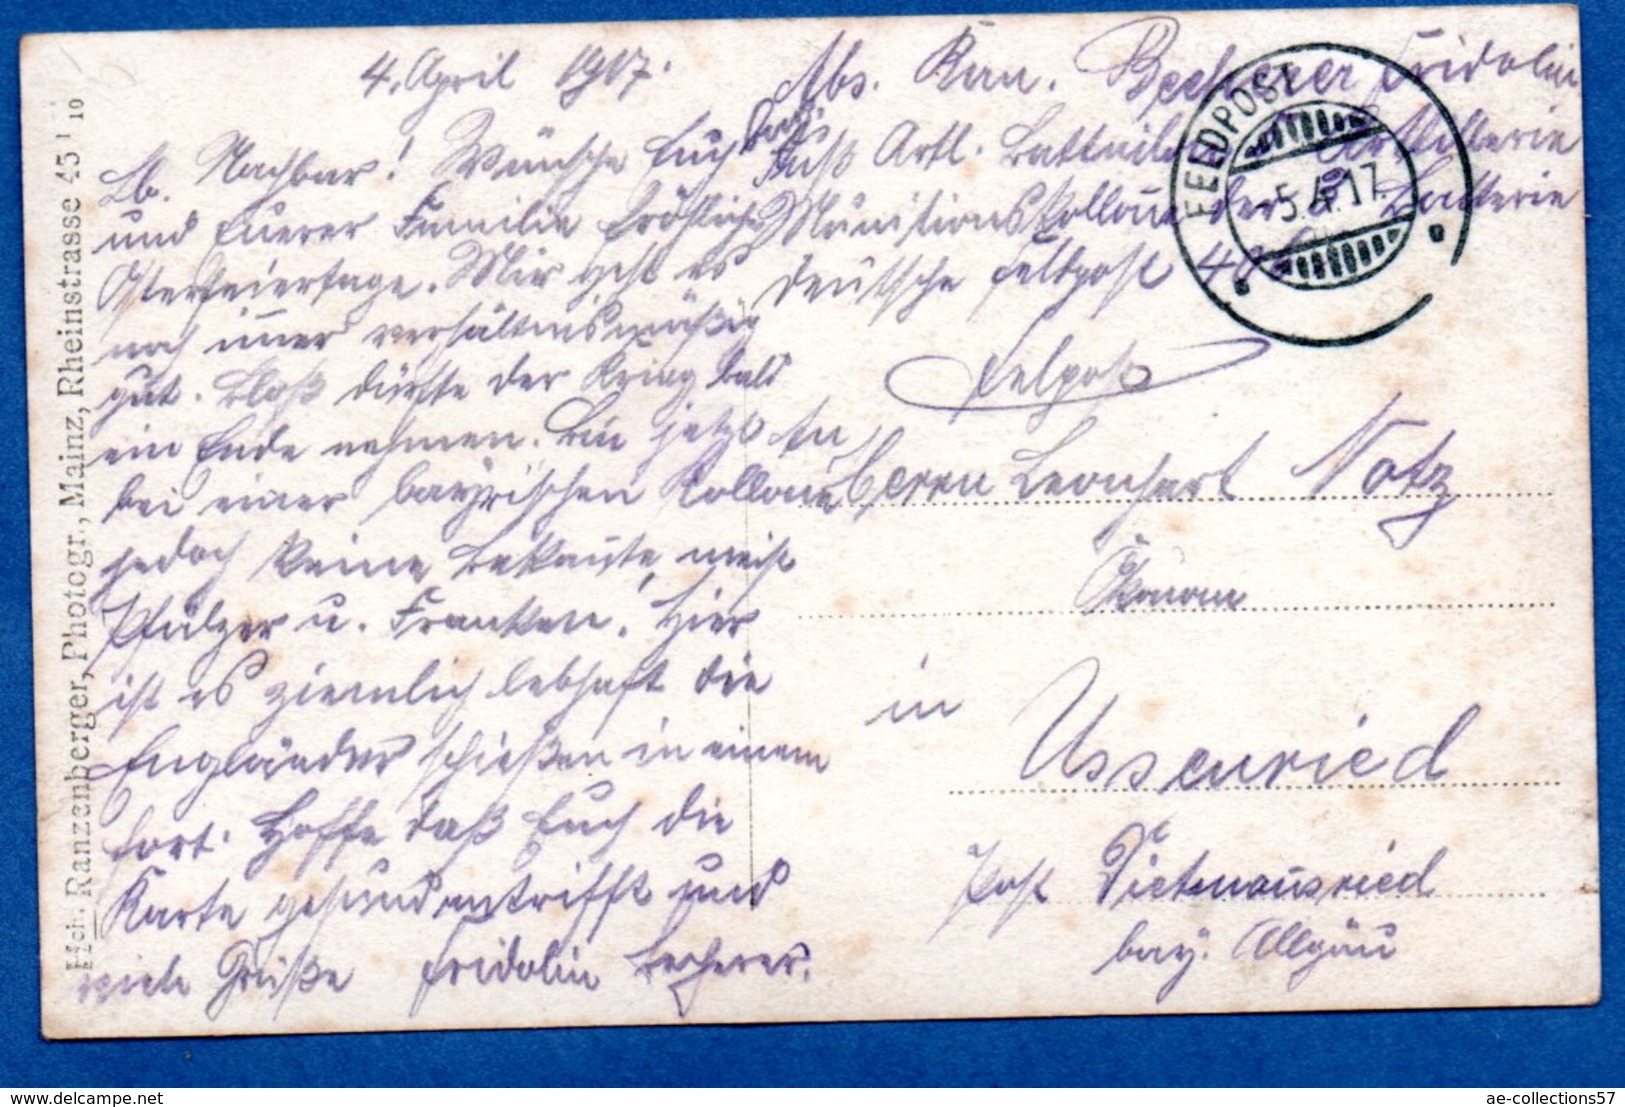 4. April 1917.
Lb. Nachbar! Wünsche Euch
und Euerer Familie fröhliche
Osterfeiertage. Mir geht es
noch imer verhältnismäßig
gut. Bloß dürfte der Krieg bald
ein Ende nehmen. Bin jetzt
bei einer bayrischen Kollone
jedoch keine Bekannte, meist
Pfälzer u. Franken. Hier
ist es ziemlich lebhaft die
Engländer schießen in einem
fort. Hoffe daß Euch die
Karte gesund antrifft und
viele Grüße Fridolin Becherer.
Abs. Kan. Becherer Fridolin
bay. Fuß Artl. Battailon Artillerie
Munitions Kollone der 8 Batterie
deutsche Feldpost
FELDPOST
-5.4.17.
Feldpost
An
Herrn Leonhart Notz
Ökonom
in
Ussenried
Post Dietmansried
bay. Allgäu
Hch. Ranzenberger, Photogr., Mainz, Rheinstrasse 45 1/10
ae-collections57